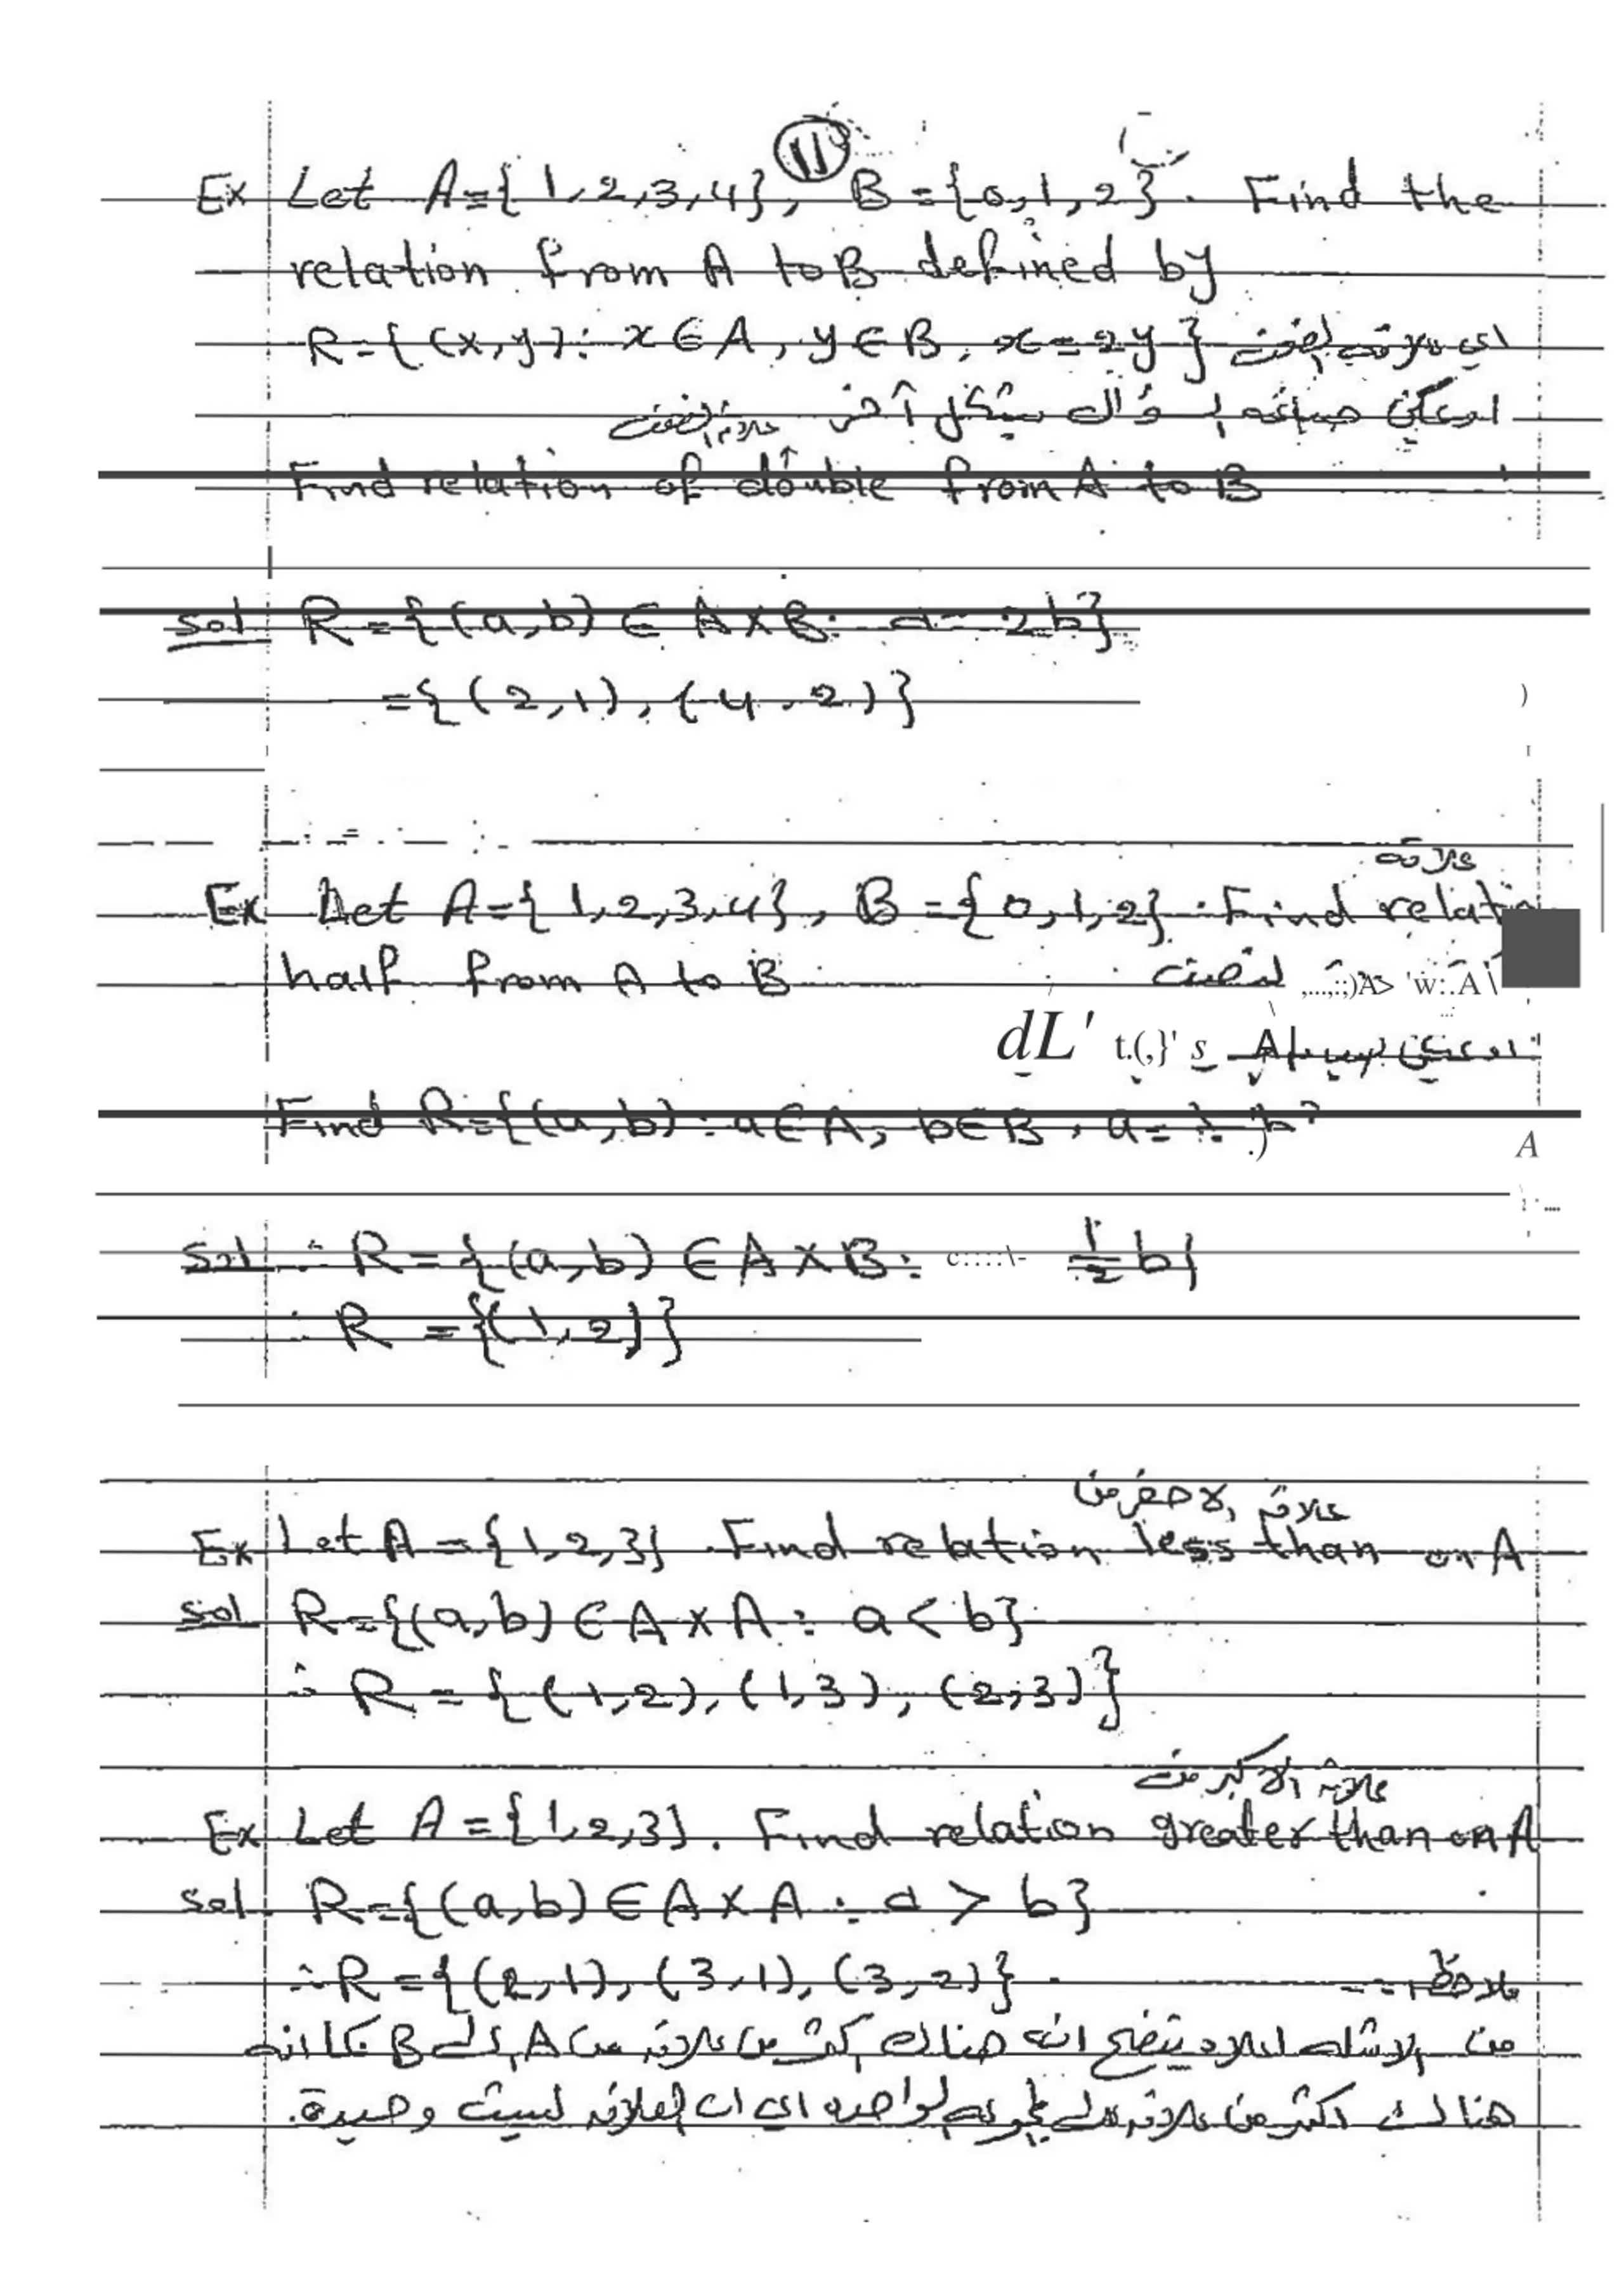 11
Ex Let A={1,2,3,4}, B={0,1,2}. Find the
relation from A to B defined by
R={(x,y): x∈A, y∈B, x=2y} اي علاقة الضعف
او يمكن صياغة السؤال بشكل آخر علاقة الضعف
Find relation of double from A to B
sol R={(a,b)∈A×B: a=2b}
={(2,1),(4,2)}
علاقة
Ex Let A={1,2,3,4}, B={0,1,2}. Find relatio
half from A to B النصف
Find R={(a,b): a∈A, b∈B, a=
sol ∴ R={(a,b)∈A×B: 1/2 b}
∴ R={(1,2)}
علاقة الاصغر من
Ex Let A={1,2,3}. Find relation less than on A
sol R={(a,b)∈A×A: a<b}
∴ R={(1,2),(1,3),(2,3)}
علاقة الاكبر من
Ex Let A={1,2,3}. Find relation greater than on A
sol R={(a,b)∈A×A: a>b}
∴ R={(2,1),(3,1),(3,2)}. ملاحظة
من الامثلة اعلاه يتضح انه هناك اكثر من علاقة من A الى B كما انه
هناك اكثر من علاقة على المجموعة الواحدة اي ان العلاقة ليست وحيدة.